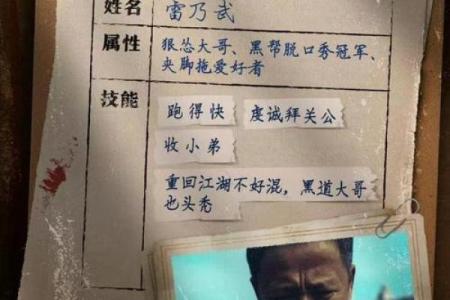 姓名 雷乃武
属性 狠怂大哥、黑帮脱口秀冠军、
夹脚拖爱好者
技能 跑得快 虔诚拜关公
收小弟
重回江湖不好混，黑道大哥
也头秃